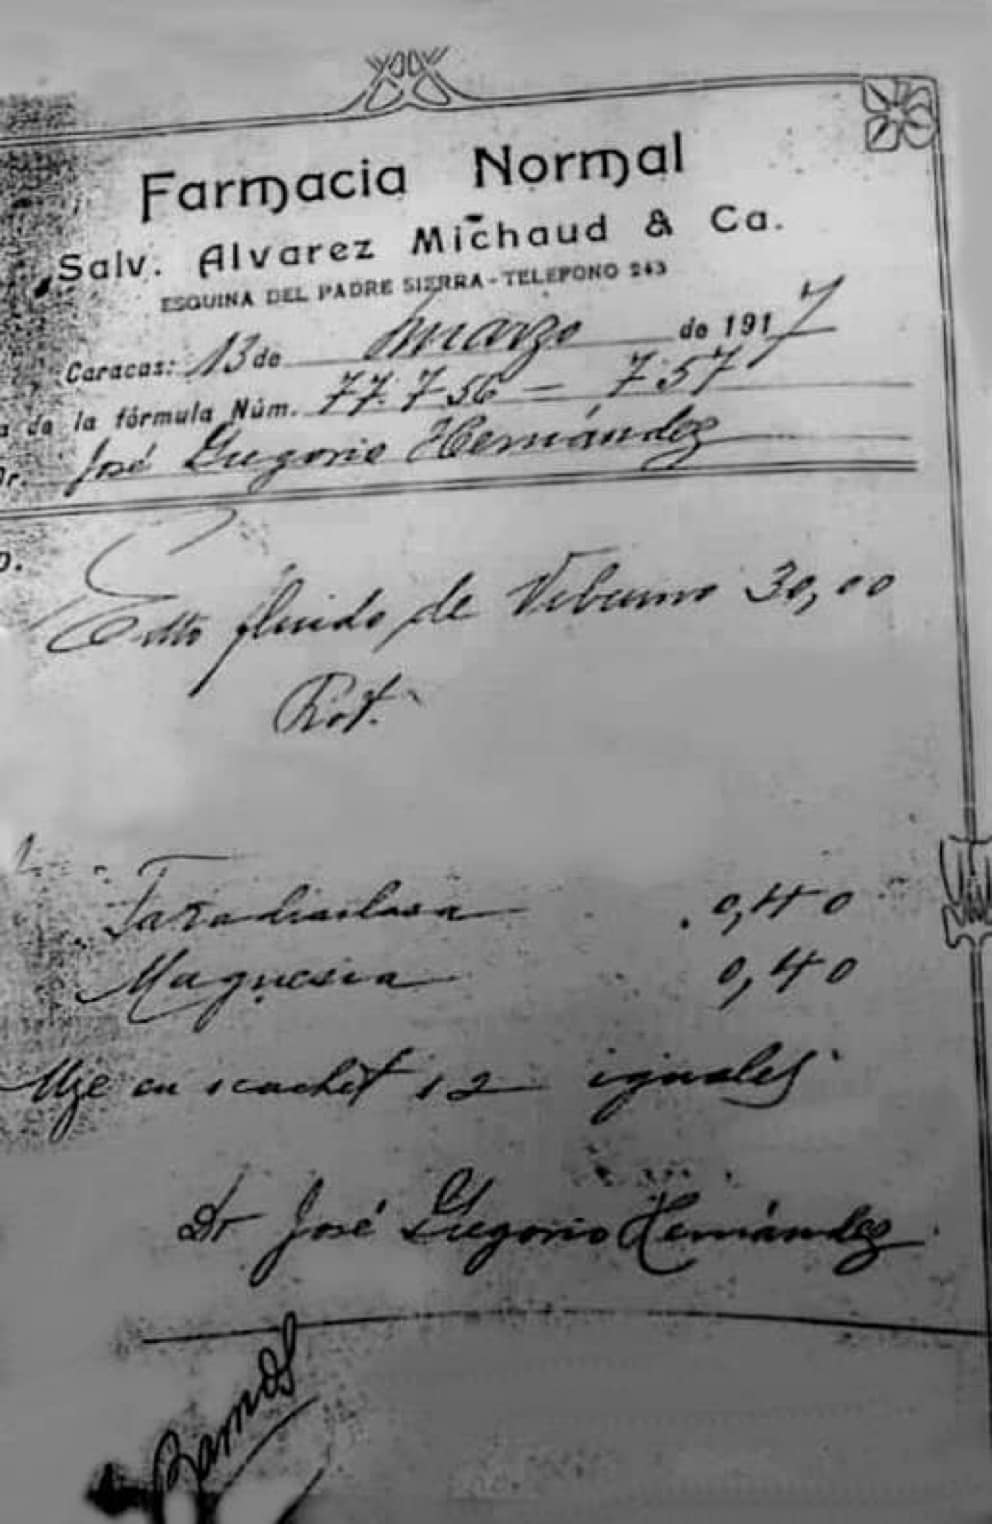 Farmacia Normal
Salv. Alvarez Michaud & Ca.
ESQUINA DEL PADRE SIERRA - TELEFONO 243
Caracas: 13 de marzo de 1917
a de la fórmula Núm. 77.756 - 757
Dr. José Gregorio Hernández
Extto fluido de Viburno 30,00
Rot.
Taradiastasa 0,40
Magnesia 0,40
Hge en 1 cachet 12 iguales
Dr José Gregorio Hernández